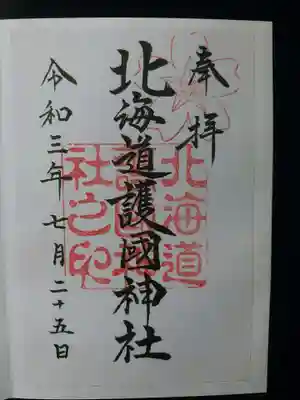 奉拝
北海道護國神社
北海道護國神社之印
令和三年七月二十五日